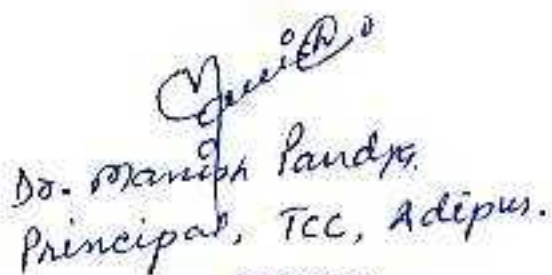 Dr. Manish Pandya
Principal, TCC, Adipur.